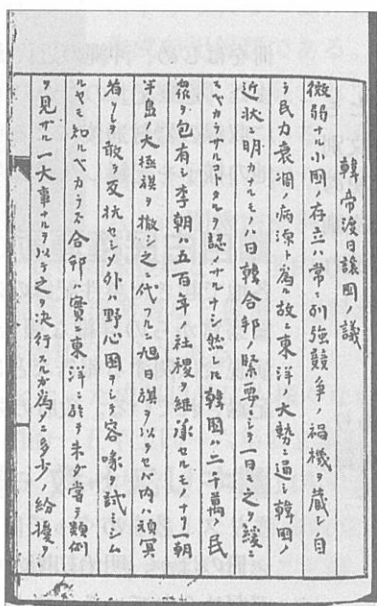 韓帝渡日譲国ノ議
微弱ナル小国ノ存立ハ常ニ列強競争ノ禍機ヲ蔵シ自
ラ民力衰凋ノ病源ト為ル故ニ東洋ノ大勢ニ通シ韓国ノ
近状ニ明カナルモノハ日韓合邦ノ緊要ニシテ一日モ之ヲ緩ニ
スベカラサルコトタルヲ認メサルナシ然レトモ韓国ハ二千萬ノ民
衆ヲ包有シ李朝ハ五百年ノ社稷ヲ継承セルモノナリ一朝
半島ノ大極旗ヲ撤シ之ニ代フルニ旭日旗ヲ以テセバ内ハ頑冥
者ヲシテ敢テ反抗セシメ外ハ野心国ヲシテ容喙ヲ試ミシム
ルヤモ知ルベカラズ合邦ハ実ニ東洋ニ於テ未ダ嘗テ類例
ヲ見サル一大事ナルヲ以テ之ヲ決行スルガ為メニ多少ノ紛擾ヲ